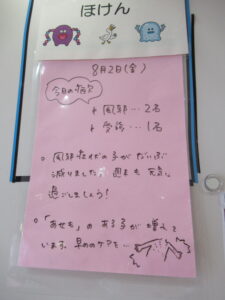 ほけん
8月2日(金)
今日の病欠
＊ 風邪…2名
＊ 受診…1名
○ 風邪症状の子がだいぶ
減りました 週末も元気に
過ごしましょう！
○ 「あせも」のある子が増えて
います。早めのケアを…